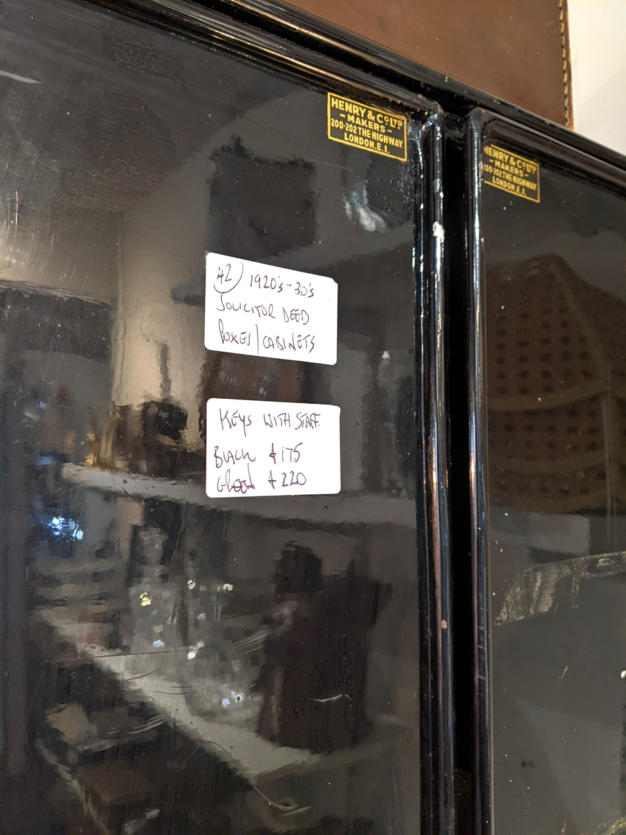 HENRY & Co LTD
- MAKERS -
200-202 THE HIGHWAY
LONDON. E.1.
HENRY & Co LTD
- MAKERS -
200-202 THE HIGHWAY
LONDON. E.1.
42) 1920's-30's
SOLICITOR DEED
BOXES/CABINETS
KEYS WITH STAFF.
BLACK £175
£220